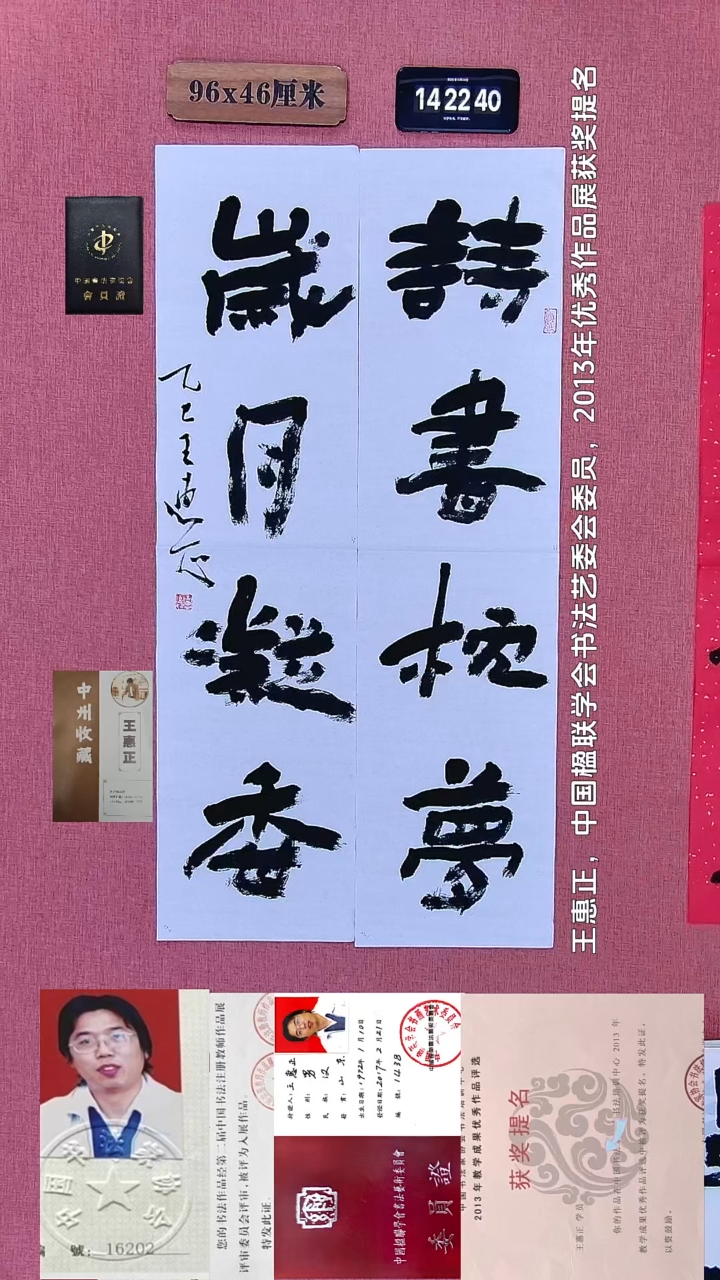 96x46厘米
14 22 40
詩書枕夢
歲月凝香
乙巳王惠正
王惠正，中国楹联学会书法艺委会委员，2013年优秀作品展获奖提名
会员证
中州
藏瓷
王惠正
號：16202
您的书法作品经第二届中国书法注册教师作品展
评审委员会评审，被评为入展作品。
特发此证。
持证人：王惠正
性别：男
民族：汉
籍贯：山东
出生日期：1972年1月10日
发证日期：2017年2月21日
编号：1638
中國楹聯學會書法藝術委員會
委員證
2013年教学成果优秀作品评选
获奖提名
王惠正 学员
你的作品在中国书法 书法培训中心2013年
教学成果优秀作品评选中被评为获奖提名，特发此证，
以资鼓励。